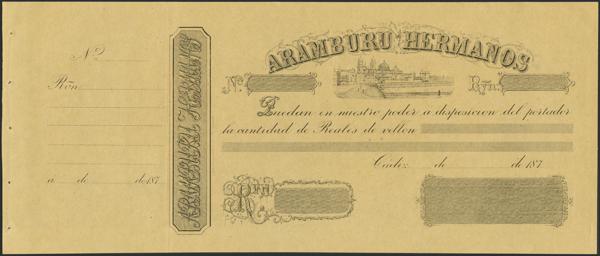 Nº
Rvn
a de de 187
ARAMBURU HERMANOS
ARAMBURU HERMANOS
Nº
Rvn.
Quedan en nuestro poder a disposicion del portador
la cantidad de Reales de vellon
Cadiz de de 187
Rvn